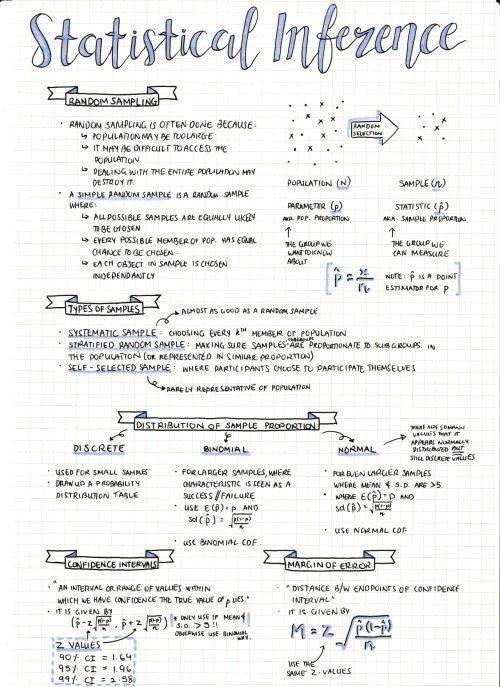 Statistical Inference
RANDOM SAMPLING
· RANDOM SAMPLING IS OFTEN DONE BECAUSE:
↳ POPULATION MAY BE TOO LARGE
↳ IT MAY BE DIFFICULT TO ACCESS THE
POPULATION
↳ DEALING WITH THE ENTIRE POPULATION MAY
DESTROY IT.
· A SIMPLE RANDOM SAMPLE IS A RANDOM SAMPLE
WHERE:
↳ ALL POSSIBLE SAMPLES ARE EQUALLY LIKELY
TO BE CHOSEN
↳ EVERY POSSIBLE MEMBER OF POP. HAS EQUAL
CHANCE TO BE CHOSEN.
↳ EACH OBJECT IN SAMPLE IS CHOSEN
INDEPENDANTLY
RANDOM
SELECTION
POPULATION (N)
SAMPLE (n)
PARAMETER (p)
AKA. POP. PROPORTION
STATISTIC (p̂)
AKA. SAMPLE PROPORTION
THE GROUP WE
WANT TO KNOW
ABOUT
THE GROUP WE
CAN MEASURE
p̂ = x/n
NOTE: p̂ IS A POINT
ESTIMATOR FOR p
TYPES OF SAMPLES
ALMOST AS GOOD AS A RANDOM SAMPLE
· SYSTEMATIC SAMPLE: CHOOSING EVERY kTH MEMBER OF POPULATION
· STRATIFIED RANDOM SAMPLE: MAKING SURE SAMPLES ARE PROPORTIONATE TO SUBGROUPS IN
THE POPULATION (OR REPRESENTED IN SIMILAR PROPORTION)
· SELF-SELECTED SAMPLE: WHERE PARTICIPANTS CHOOSE TO PARTICIPATE THEMSELVES
RARELY REPRESENTATIVE OF POPULATION
DISTRIBUTION OF SAMPLE PROPORTION
DISCRETE
· USED FOR SMALL SAMPLES
· DRAW UP A PROBABILITY
DISTRIBUTION TABLE
BINOMIAL
· FOR LARGER SAMPLES, WHERE
CHARACTERISTIC IS SEEN AS A
SUCCESS//FAILURE
· USE E(p̂) = p AND
sd(p̂) = √p(1-p)/n
· USE BINOMIAL CDF.
NORMAL
THERE ARE SO MANY
VALUES THAT IT
APPEARS NORMALLY
DISTRIBUTED BUT
STILL DISCRETE VALUES
· FOR EVEN LARGER SAMPLES
WHERE MEAN & S.D. ARE >5.
· WHERE E(p̂) = p AND
sd(p̂) = √p(1-p)/n
· USE NORMAL CDF
CONFIDENCE INTERVALS
· "AN INTERVAL OR RANGE OF VALUES WITHIN
WHICH WE HAVE CONFIDENCE THE TRUE VALUE OF p LIES."
· IT IS GIVEN BY
(p̂ - z√p̂(1-p̂)/n, p̂ + z√p̂(1-p̂)/n)
* ONLY USE IF MEAN &
S.D. > 5!!
OTHERWISE USE BINOMIAL
WAY.
Z VALUES
90% CI = 1.64
95% CI = 1.96
99% CI = 2.58
MARGIN OF ERROR
· "DISTANCE B/W ENDPOINTS OF CONFIDENCE
INTERVAL"
· IT IS GIVEN BY
M = Z √p̂(1-p̂)/n
USE THE
SAME Z-VALUES